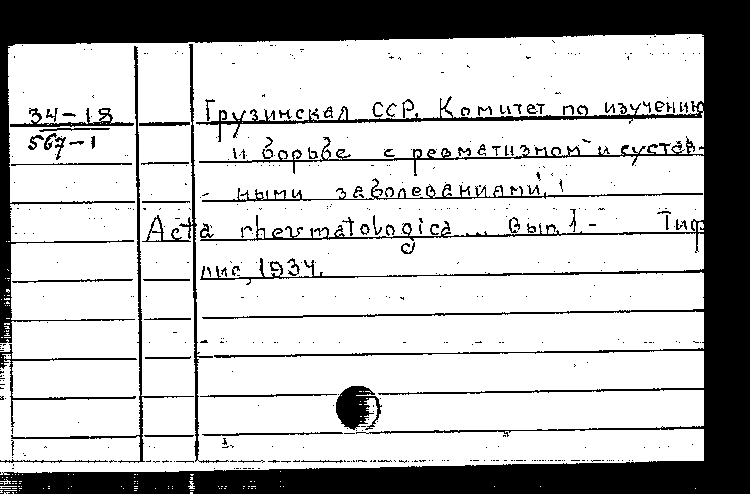 34-18
567-1
Грузинская ССР. Комитет по изучению
и борьбе с ревматизмом и сустав-
ными заболеваниями.
Acta rheumatologica... Вып. 1.- Тиф
лис, 1934.